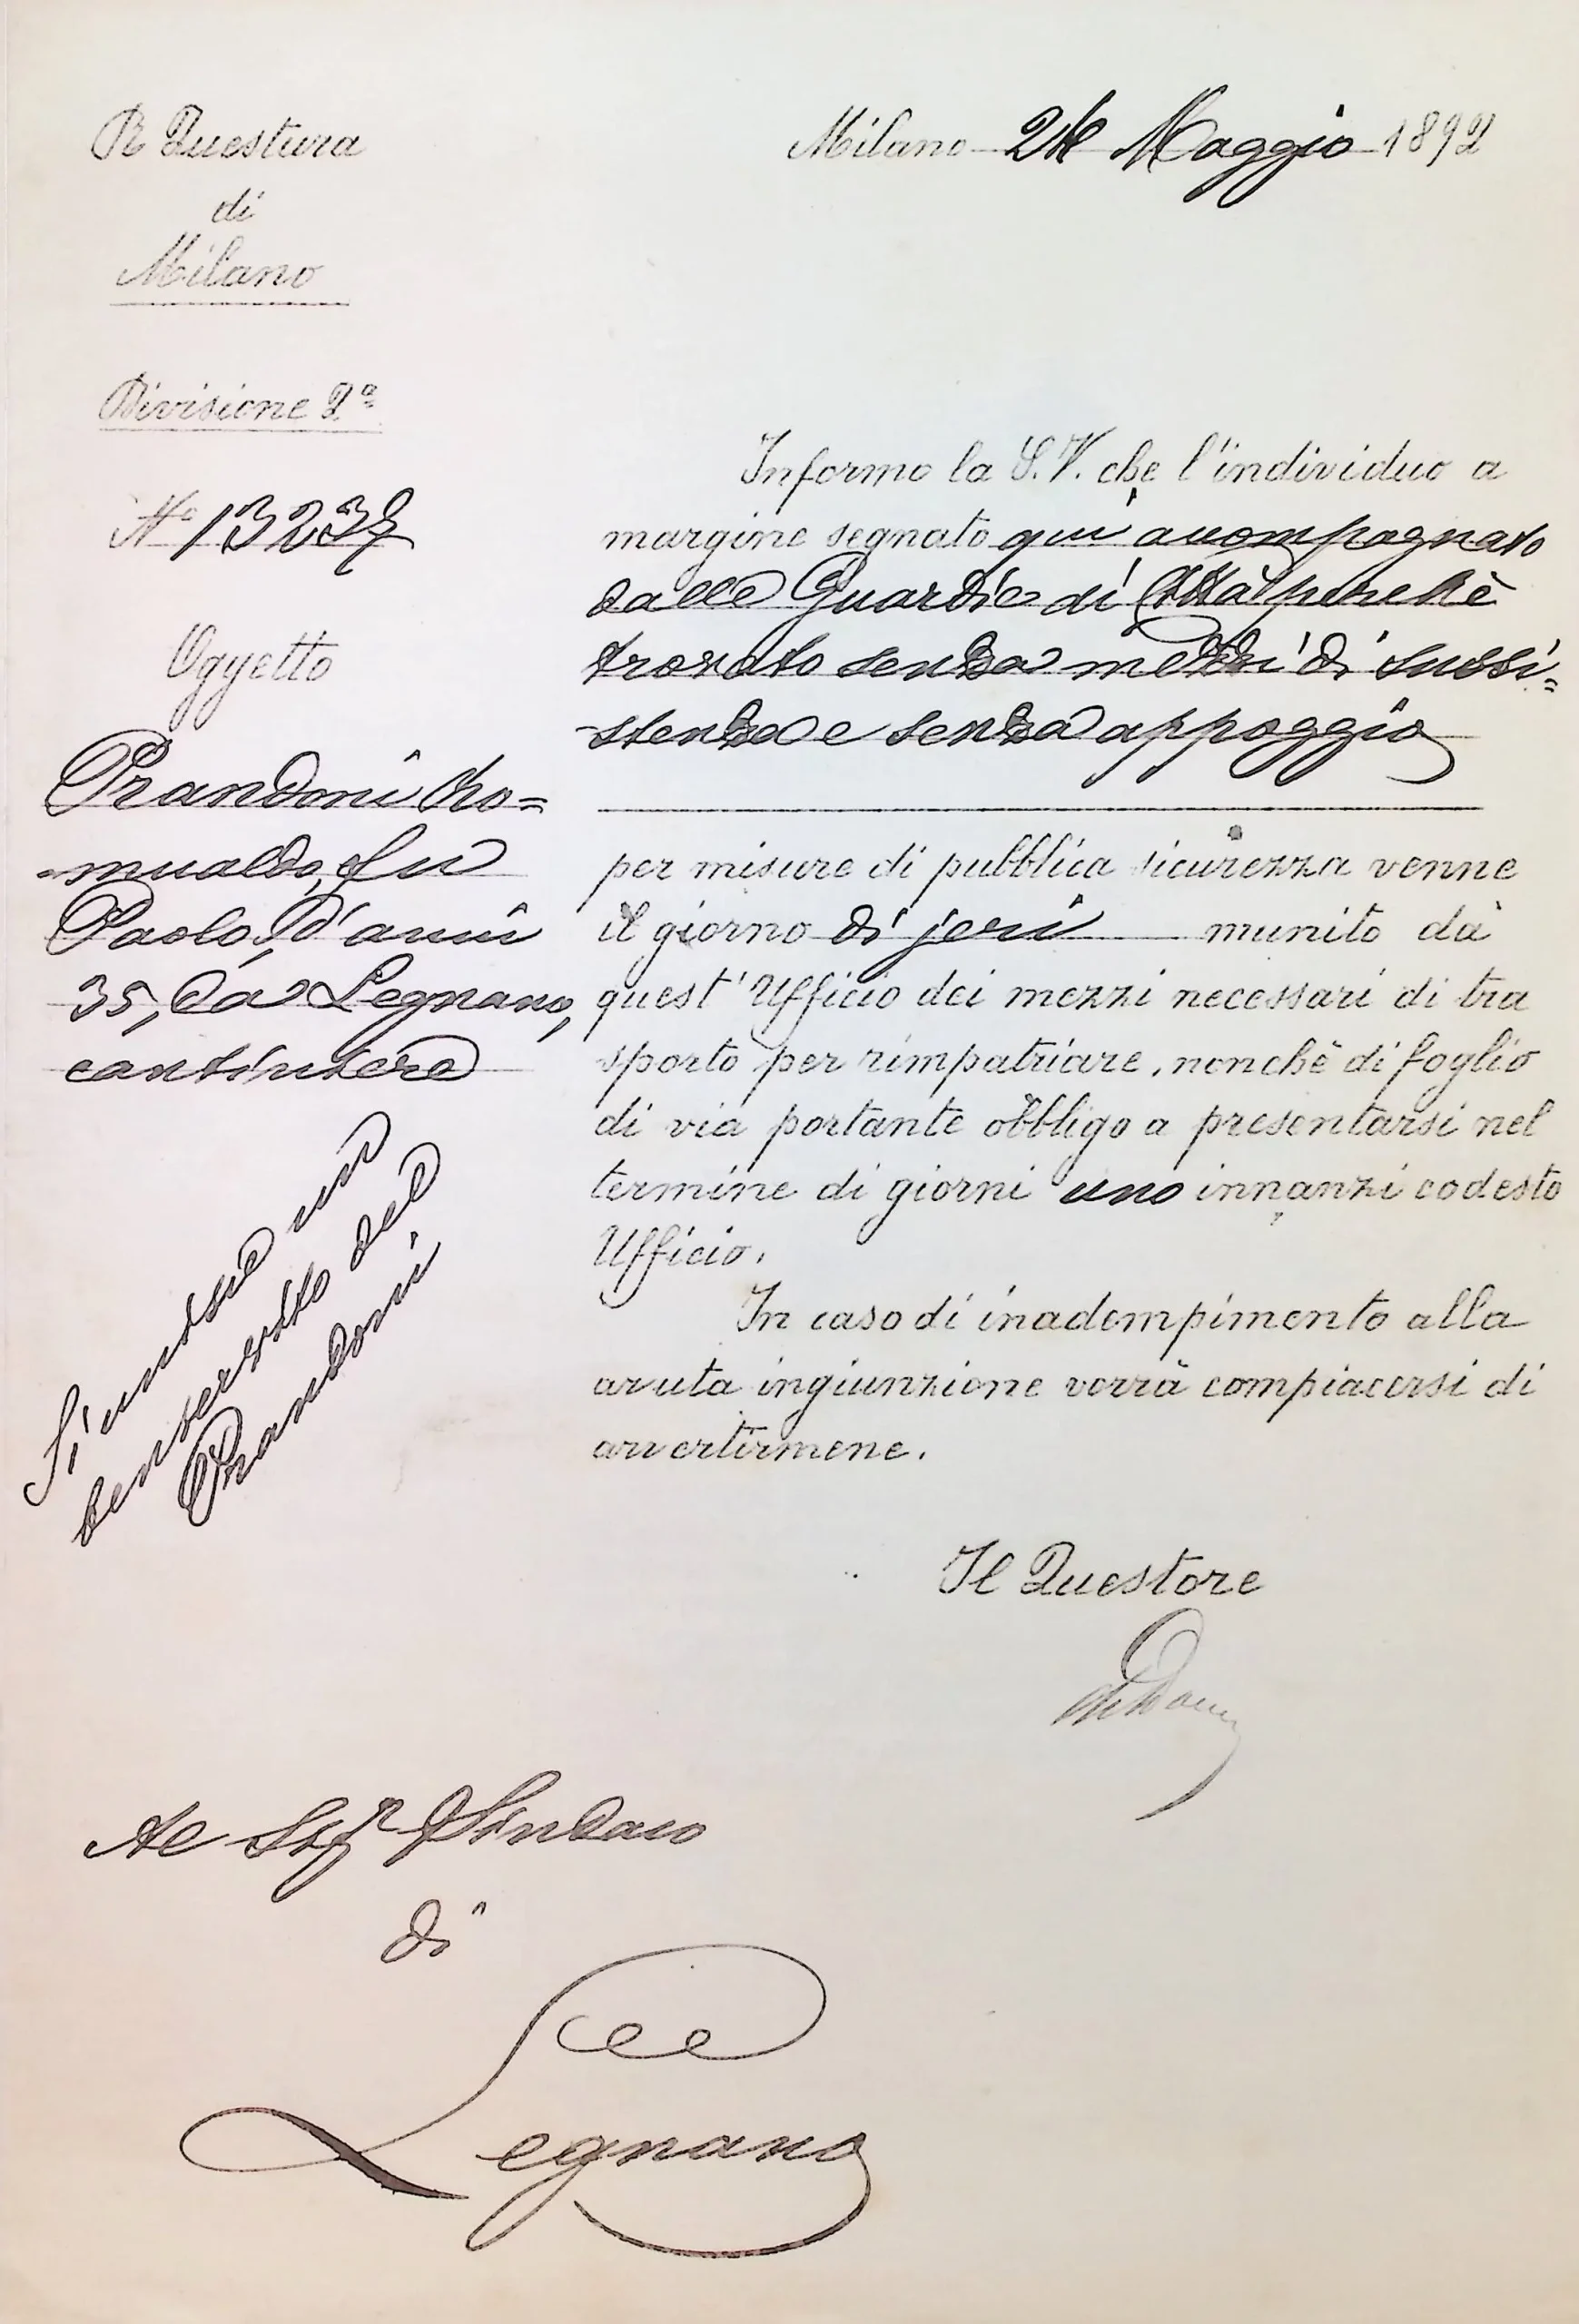 R Questura
di
Milano
Divisione 2.ª
N.o 13237
Oggetto
Prandoni Ro=
=mualdo, fu
Paolo, d'anni
35, da Legnano,
cantiniere
Si unisce un
benservito del
Prandoni
Milano Maggio 1892
Informo la S.V. che l'individuo a
margine segnato qui accompagnato
dalle Guardie di Città perchè
trovato senza mezzi di sussi=
-stenza e senza appoggio
per misure di pubblica sicurezza venne
il giorno di jeri munito da
quest'Ufficio dei mezzi necessari di tra
sporto per rimpatriare, nonchè di foglio
di via portante obbligo a presentarsi nel
termine di giorni uno innanzi codesto
Ufficio.
In caso di inadempimento alla
avuta ingiunzione vorrà compiacersi di
avvertirmene.
Il Questore
Al Sigr Sindaco
di
Legnano